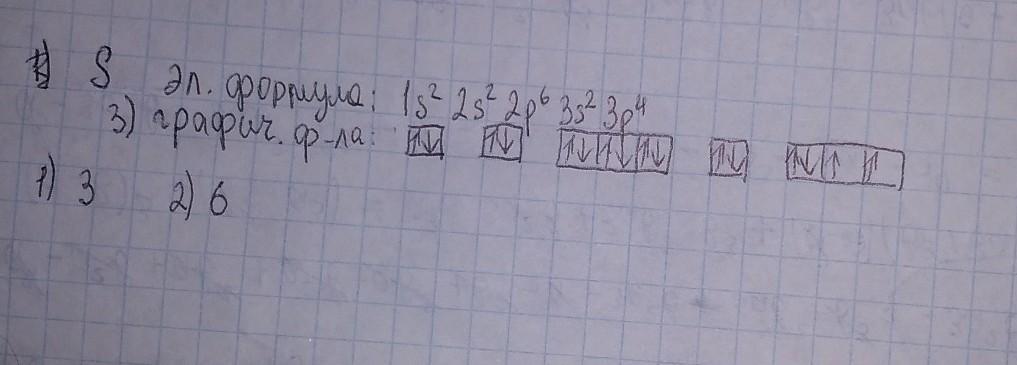 S эл. формула: 1s² 2s² 2p⁶ 3s² 3p⁴
3) графич. ф-ла: ↑↓ ↑↓ ↑↓ ↑↓ ↑↓ ↑↓ ↑↓ ↑ ↑
1) 3 2) 6